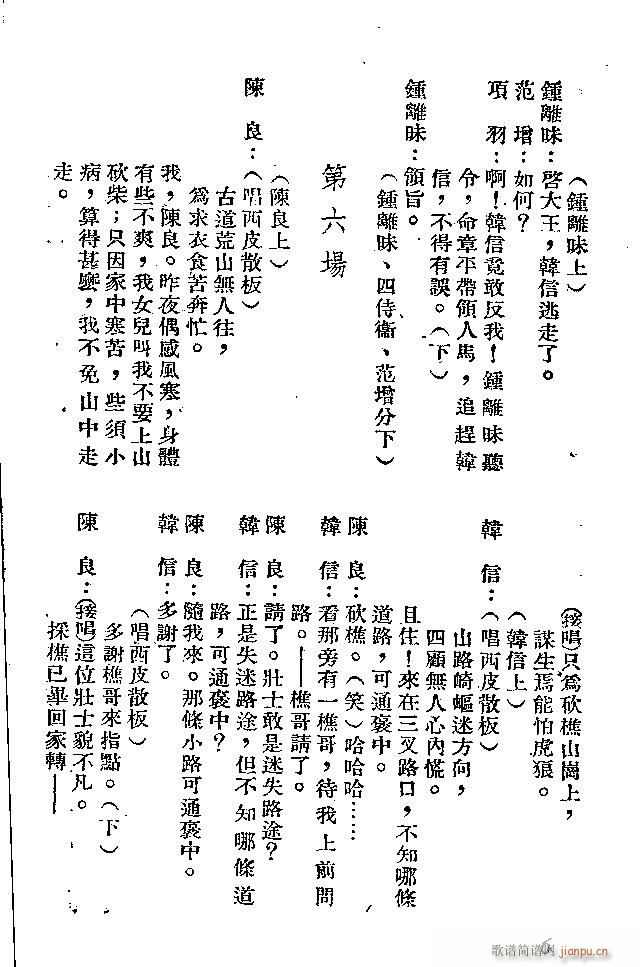 （鍾離昧上）
鍾離昧：啓大王，韓信逃走了。
范　增：如何？
項　羽：啊！韓信竟敢反我！鍾離昧聽
令，命章平帶領人馬，追趕韓
信，不得有誤。（下）
鍾離昧：領旨。
（鍾離昧、四侍衞、范增分下）
第六場
（陳良上）
陳　良：（唱西皮散板）
古道荒山無人往，
爲求衣食苦奔忙。
我，陳良。昨夜偶感風寒，身體
有些不爽，我女兒叫我不要上山
砍柴；只因家中寒苦，些須小
病，算得甚麽，我不免山中走
走。
（接唱）只爲砍樵山崗上，
謀生焉能怕虎狼。
（韓信上）
韓　信：（唱西皮散板）
山路崎嶇迷方向，
四顧無人心內慌。
且住！來在三叉路口，不知哪條
道路，可通褒中。
陳　良：砍樵。（笑）哈哈哈……
韓　信：看那旁有一樵哥，待我上前問
路。——樵哥請了。
陳　良：請了。壯士敢是迷失路途？
韓　信：正是失迷路途，但不知哪條道
路，可通褒中？
陳　良：隨我來。那條小路可通褒中。
韓　信：多謝了。
（唱西皮散板）
多謝樵哥來指點。（下）
陳　良：（接唱）這位壯士貌不凡。
採樵已畢回家轉——
歌谱简谱网
jianpu.cn